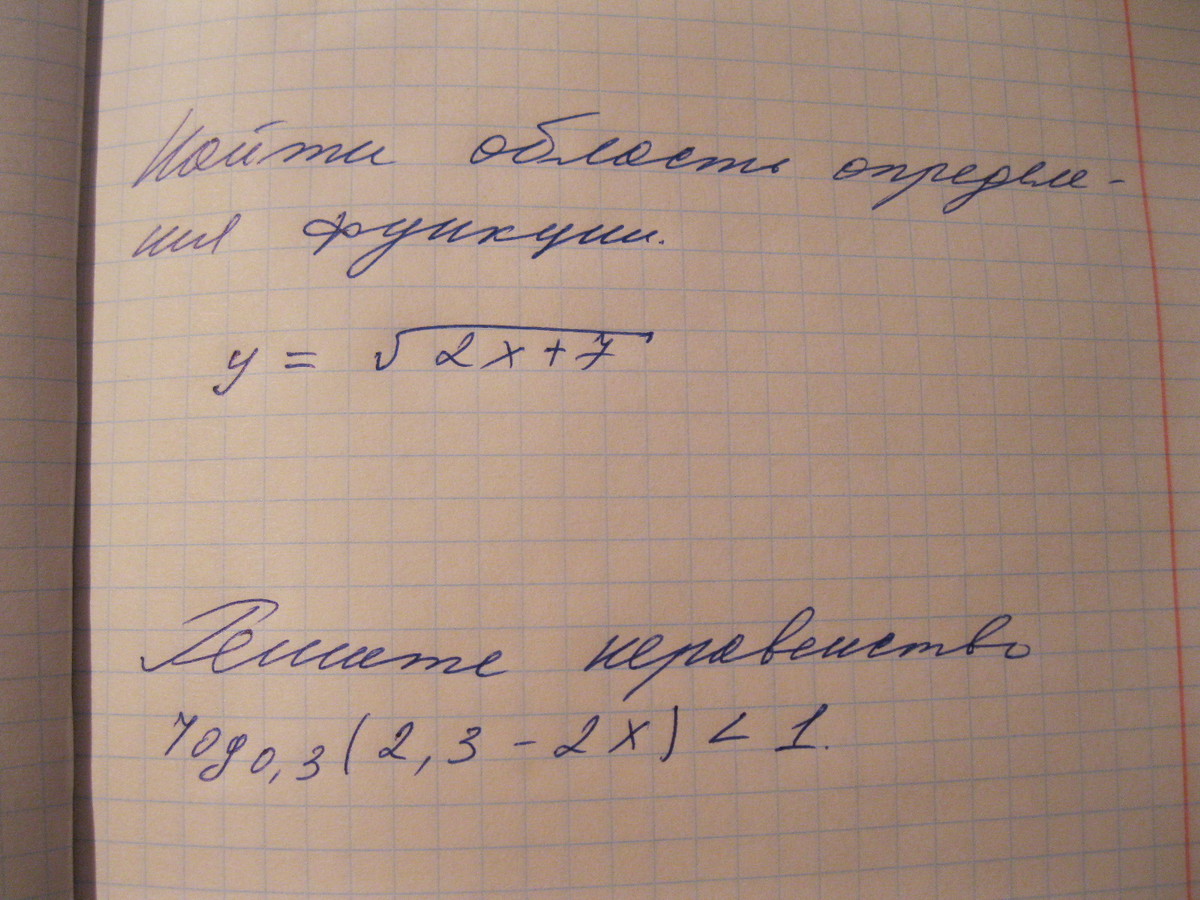 Найти области определе-
ния функции.
y = √2x+7
Решите неравенство
log0,3(2,3-2x) < 1.